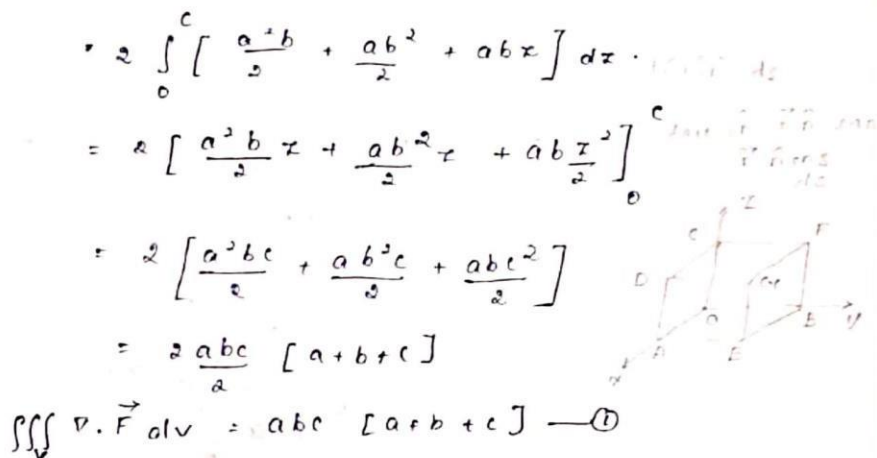 = 2 ∫₀ᶜ [ a²b/2 + ab²/2 + abz ] dz .
= 2 [ a²b/2 z + ab²/2 z + ab z²/2 ]₀ᶜ
= 2 [ a²bc/2 + ab²c/2 + abc²/2 ]
= 2 abc/2 [ a + b + c ]
∭ᵥ ∇ . F⃗ dv = abc [ a + b + c ] — ①
z
C
F
D
G
O
B
y
A
E
x